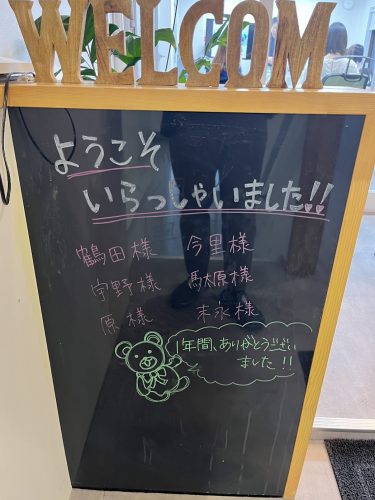 WELCOM
ようこそ
いらっしゃいました!!
鶴田様 今里様
宇野様 馬太原様
原様 末永様
1年間、ありがとうござい
ました!!